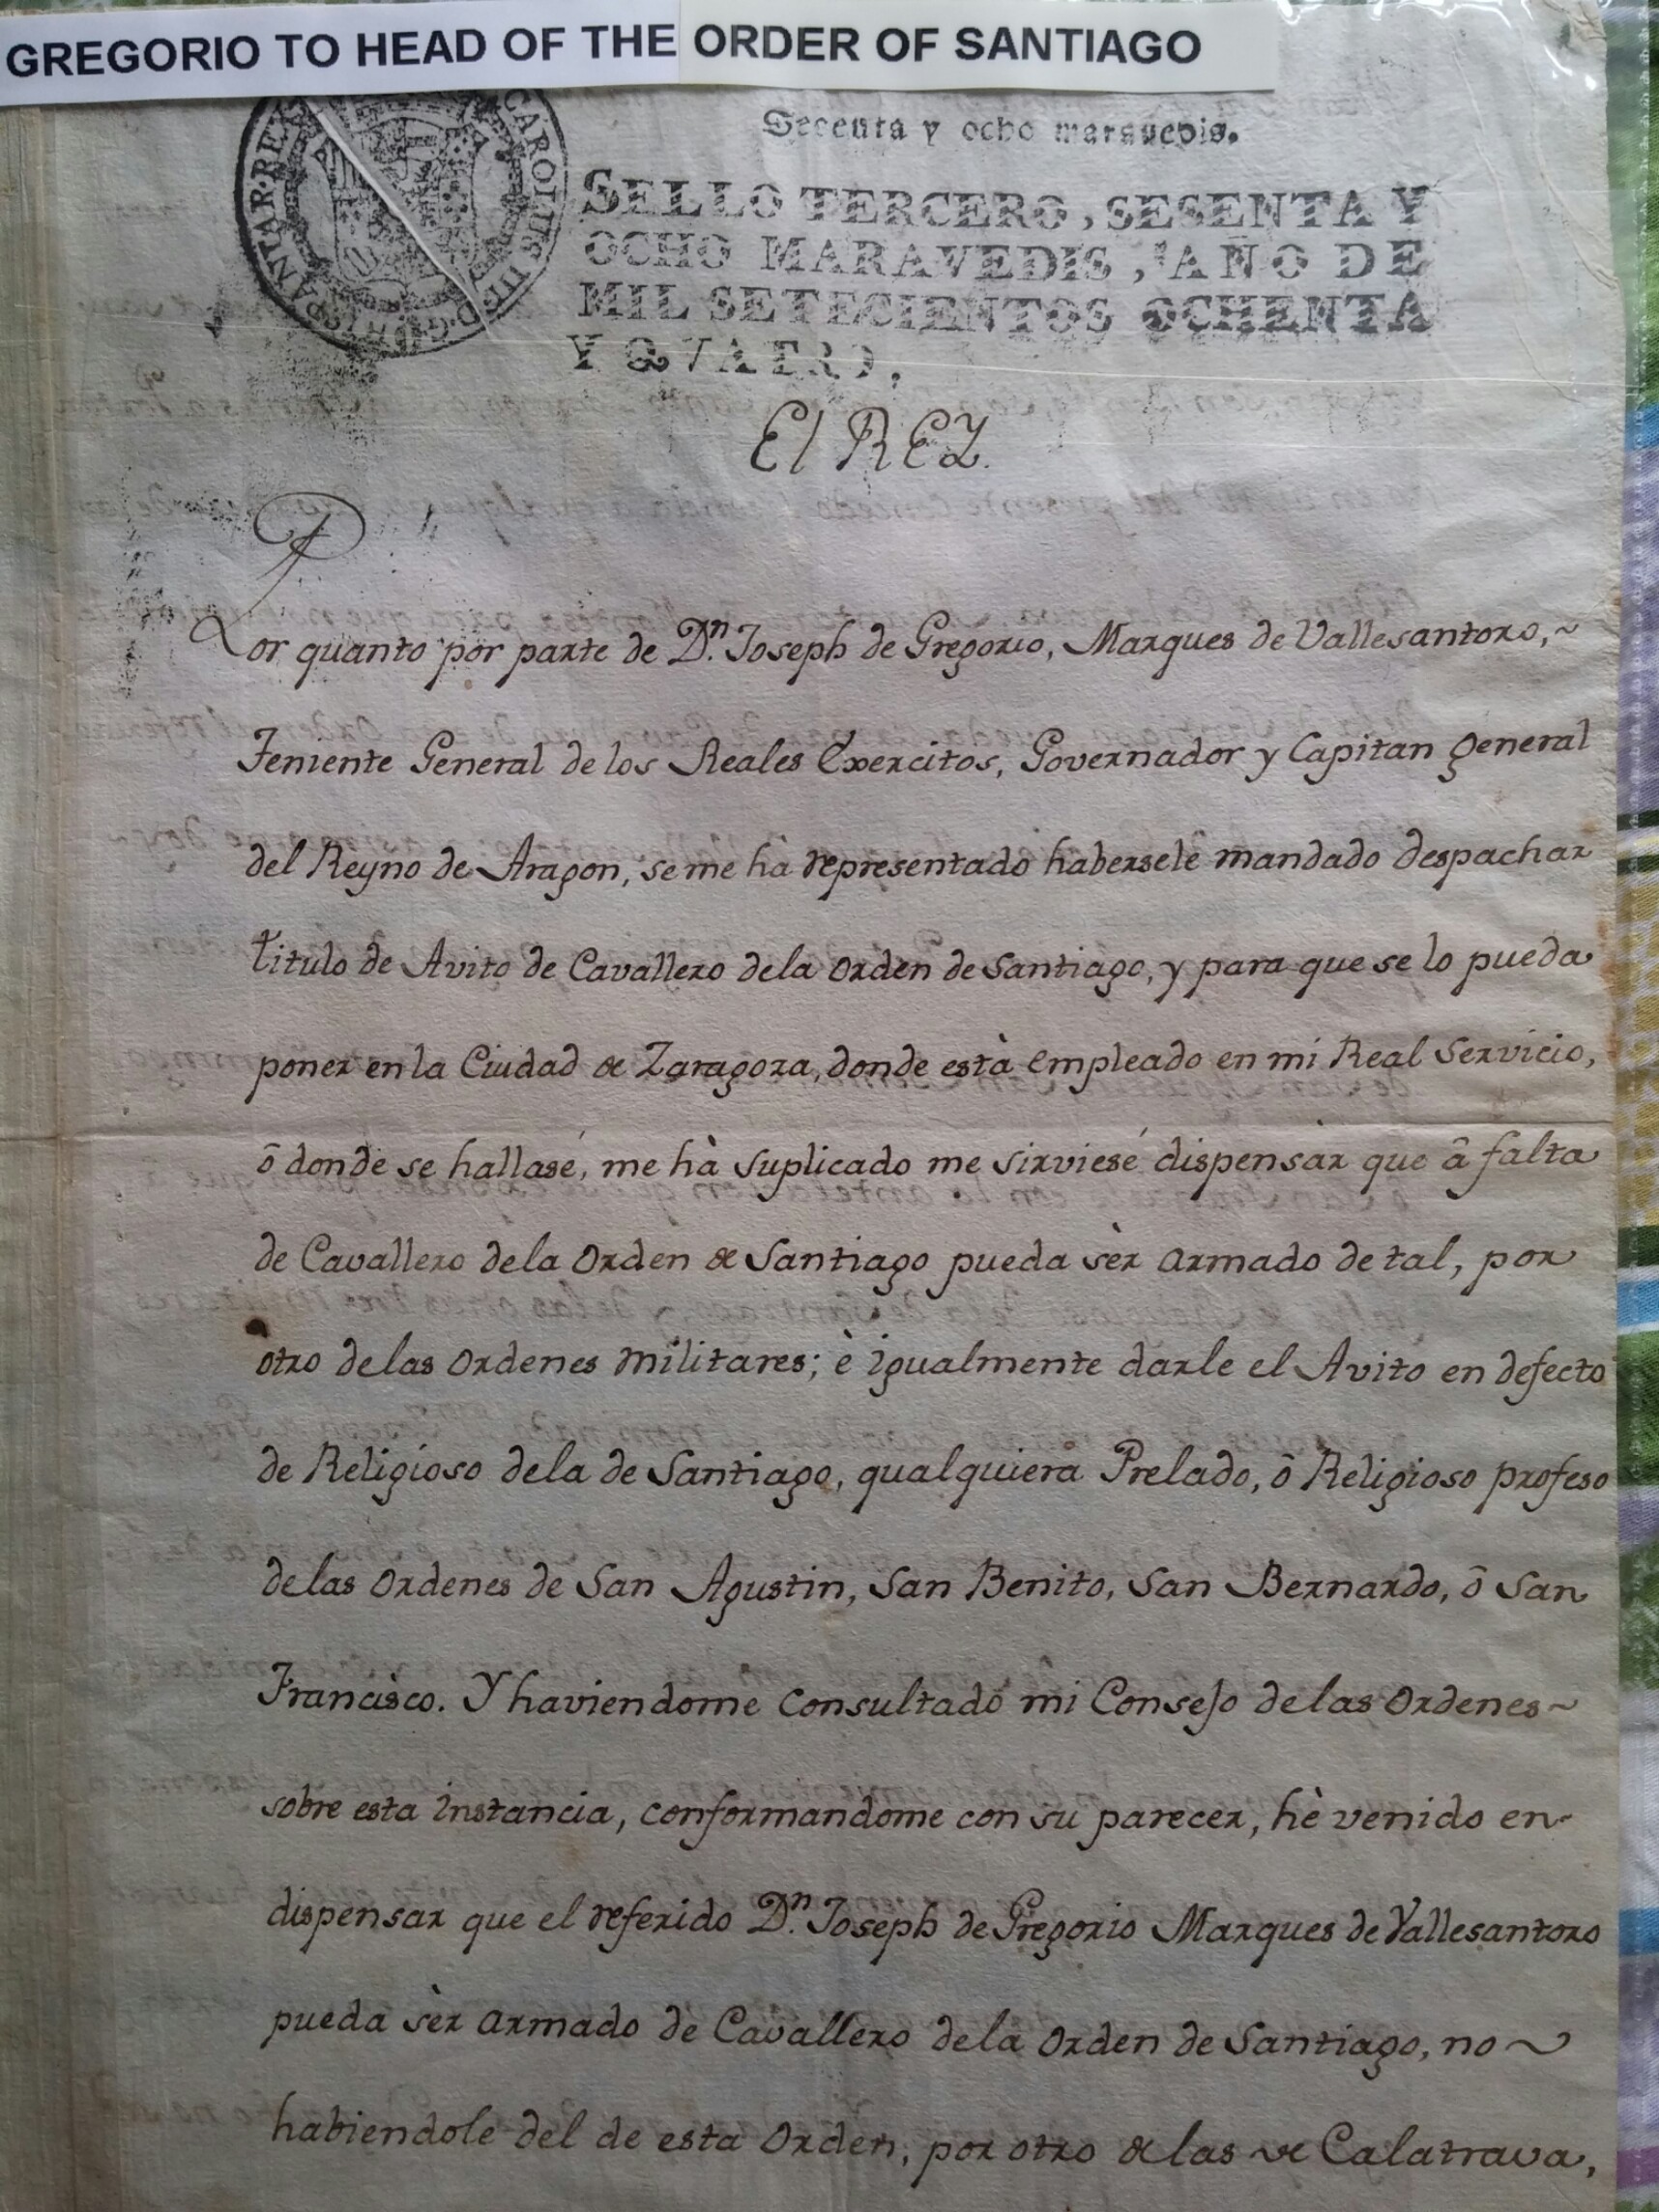 GREGORIO TO HEAD OF THE ORDER OF SANTIAGO
CAROLUS III D G HISPANIAR REX
Sesenta y ocho maravedis.
SELLO TERCERO, SESENTA Y
OCHO MARAVEDIS, AÑO DE
MIL SETECIENTOS OCHENTA
Y QVATRO,
El REY.
Por quanto por parte de Dn. Joseph de Gregorio, Marques de Vallesantoro,~
Teniente General de los Reales Exercitos, Governador y Capitan general
del Reyno de Aragon, se me hà representado habersele mandado despachar
titulo de Avito de Cavallero dela Orden de Santiago, y para que se lo pueda
poner en la Ciudad de Zaragoza, donde està empleado en mi Real Servicio,
ô donde se hallase, me hà suplicado me sirviese dispensar que â falta
de Cavallero dela Orden de Santiago pueda sèr armado de tal, por
otro delas Ordenes Militares; è igualmente darle el Avito en defecto
de Religioso dela de Santiago, qualquiera Prelado, ô Religioso profeso
delas Ordenes de San Agustin, San Benito, San Bernardo, ô San
Francisco. Y haviendome consultado mi Consejo delas Ordenes~
sobre esta instancia, conformandome con su parecer, hè venido en-
dispensar que el referido Dn. Joseph de Gregorio Marques de Vallesantoro
pueda sèr armado de Cavallero dela Orden de Santiago, no~
habiendole del de esta Orden, por otro de las de Calatrava,